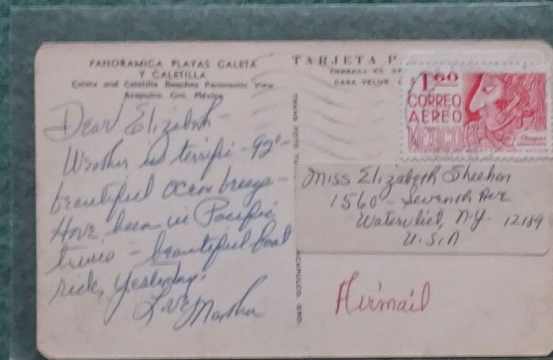 PANORAMICA PLAYAS CALETA
Y CALETILLA
Caleta and Caletilla Beaches Panoramic View
Acapulco, Gro. México
Dear Elizabeth -
Weather is terrific - 92° -
beautiful ocean breeze -
Have been in Pacific
twice - beautiful boat
ride, yesterday.
Love Martha
TARJETA
CASA VELUR
$1.60
CORREO
AEREO
MEXICO
Miss Elizabeth Sheehan
1560 Seventh Ave
Watervliet, N.Y. 12189
U.S.A.
Airmail